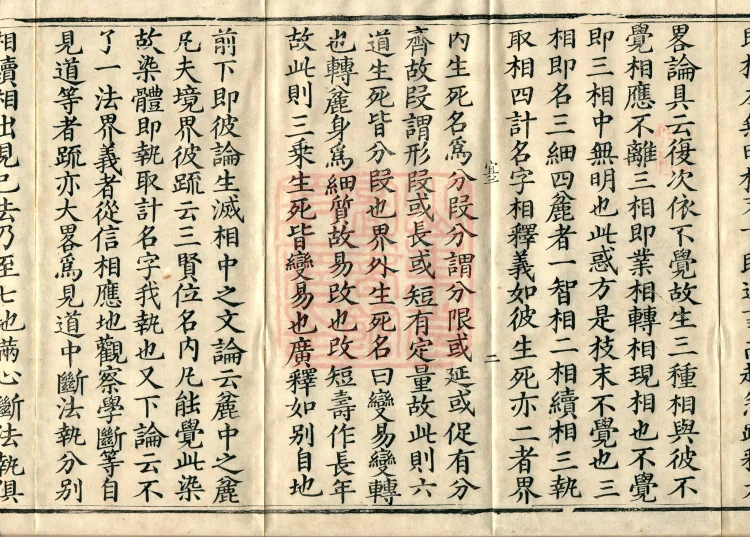 畧論具云復次依不覺故生三種相與彼不
覺相應不離三相即業相轉相現相也不覺
即三相中無明也此惑方是枝末不覺也三
相即名三細四麄者一智相二相續相三執
取相四計名字相釋義如彼生死亦二者界
二
内生死名爲分段分謂分限或延或促有分
齊故段謂形段或長或短有定量故此則六
道生死皆分段也界外生死名曰變易變轉
也轉麄身爲細質故易改也改短壽作長年
故此則三乘生死皆變易也廣釋如別自地
前下即彼論生滅相中之文論云麄中之麄
凡夫境界彼疏云三賢位名内凡能覺此染
故染體即執取計名字我執也又下論云不
了一法界義者從信相應地觀察學斷等自
見道等者疏亦大畧爲見道中斷法執分別
相續相出見已去乃至七也滿心斷法執俱